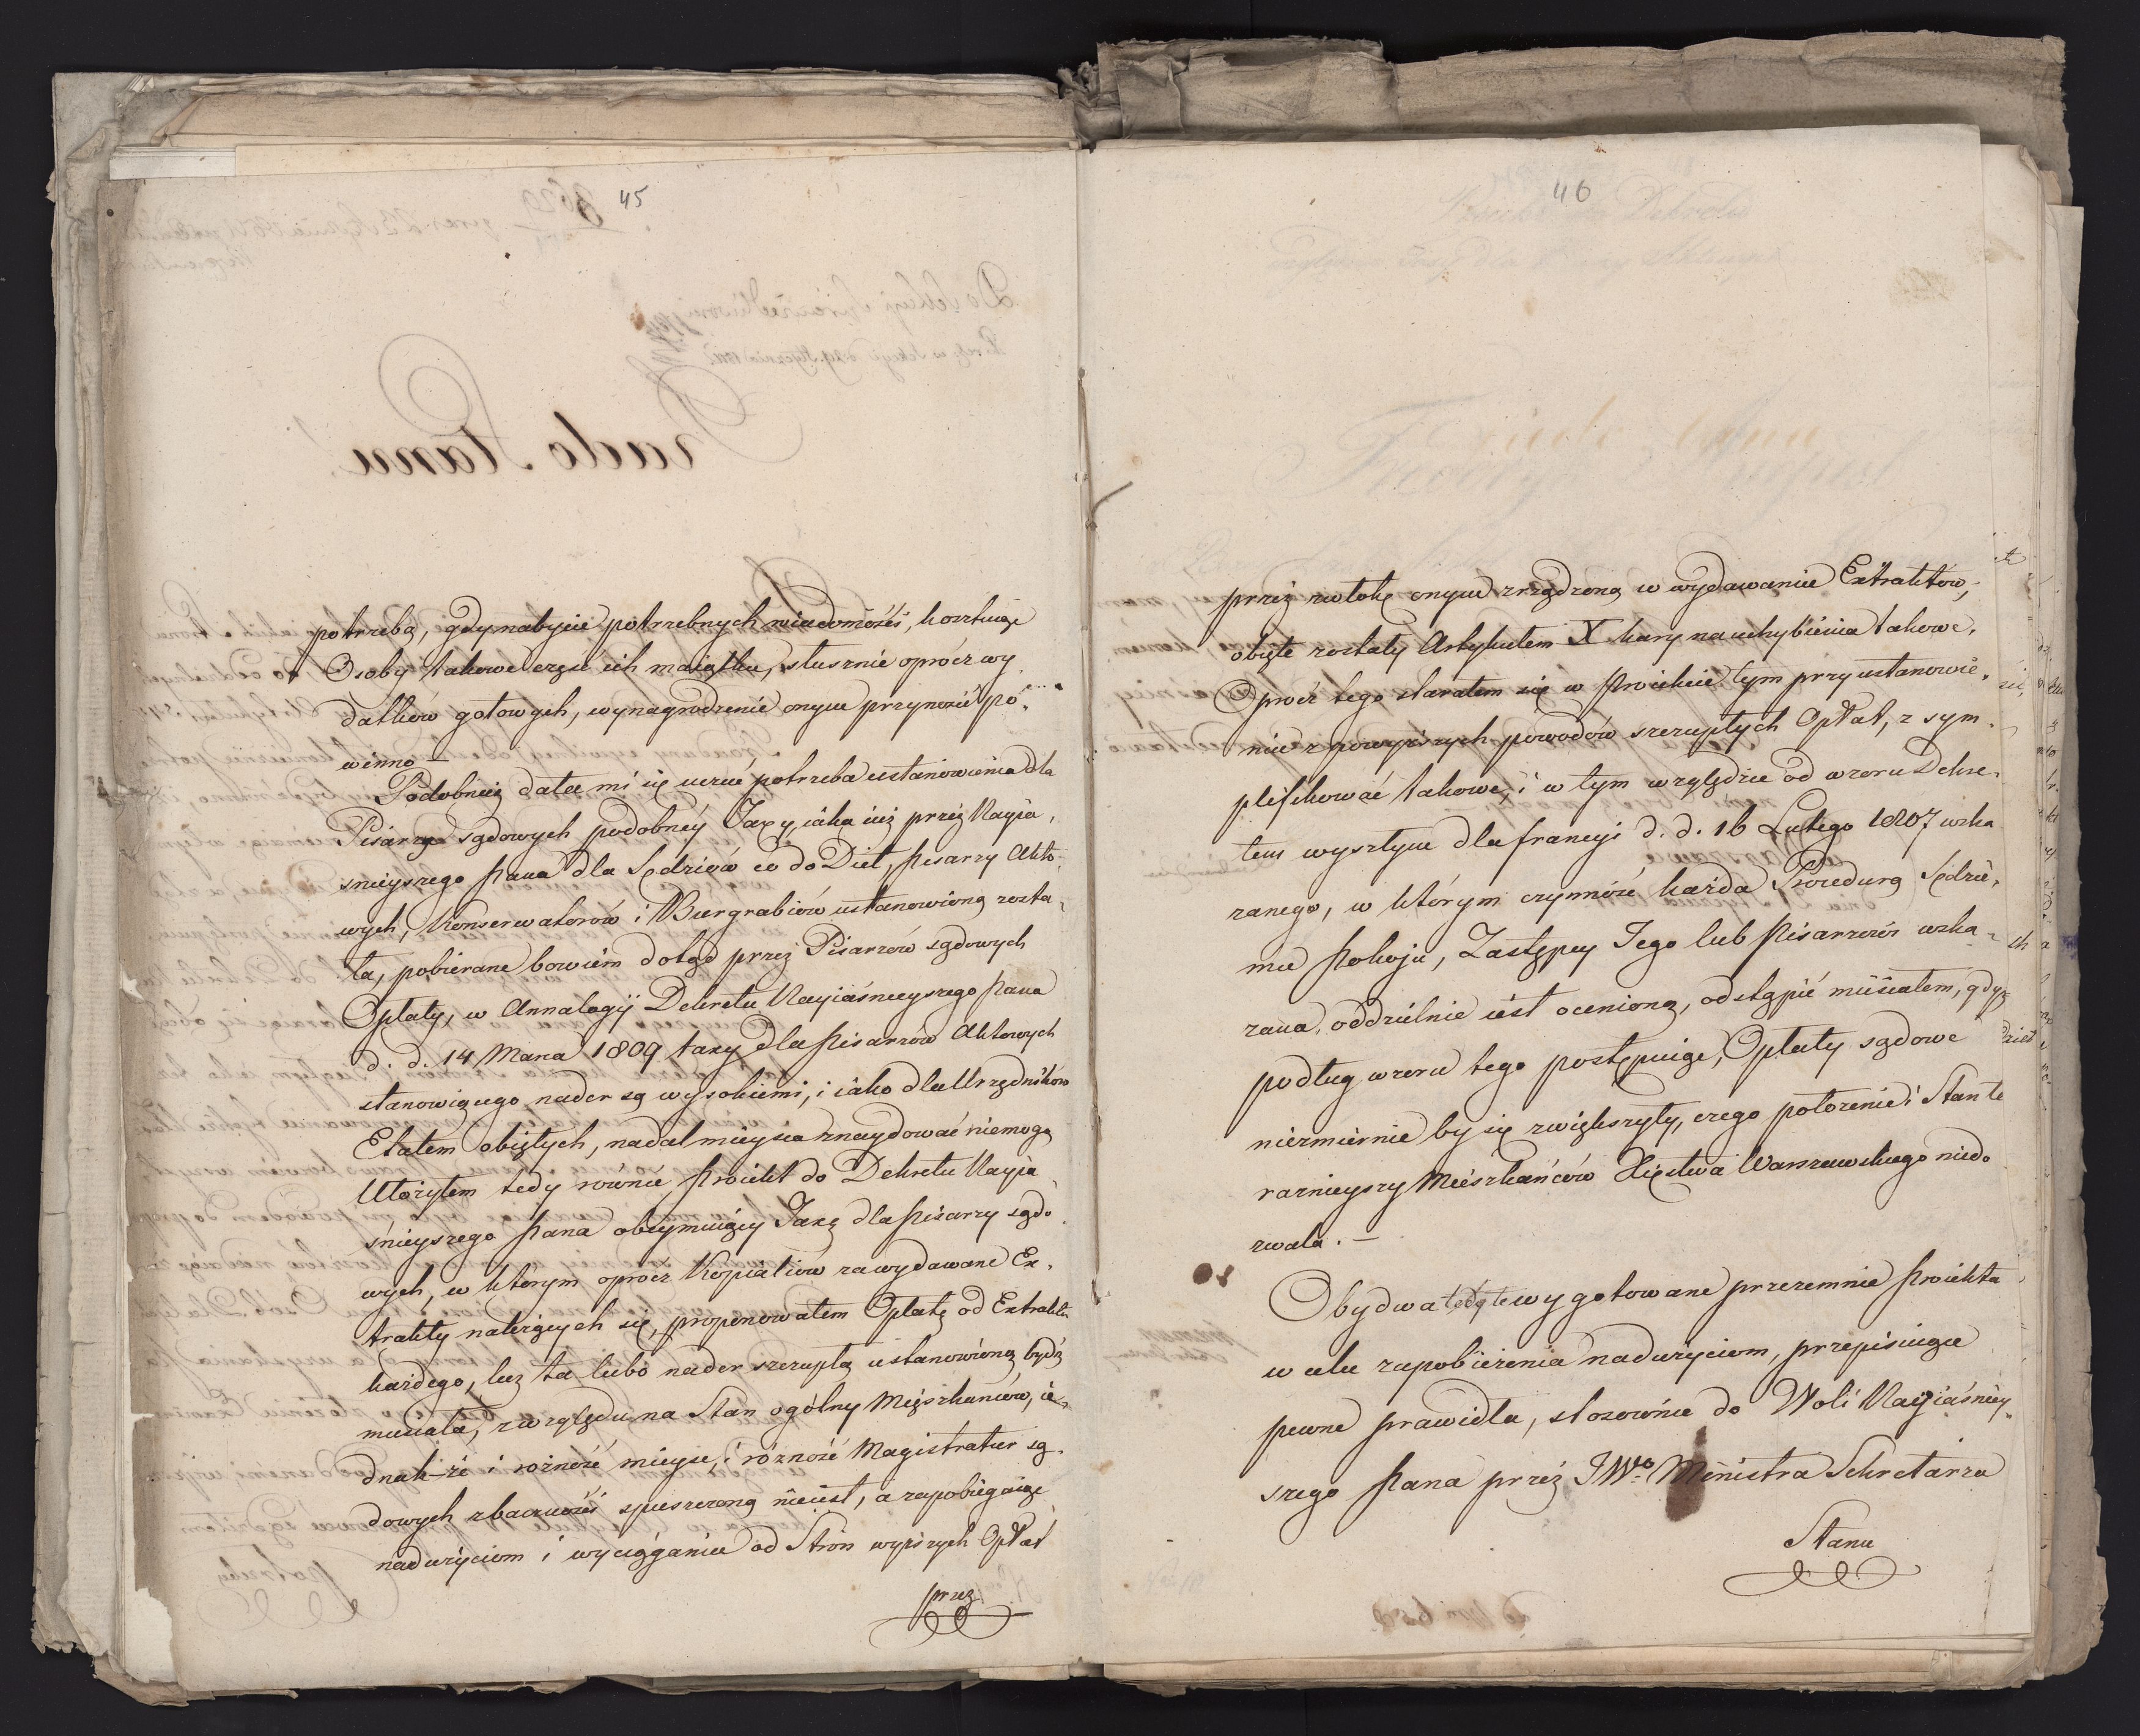 45
potrzebą, gdy nabycie potrzebnych wiadomości, kosztuiąc
Osoby takowe część ich maiątku, słusznie oprócz wy
datków gotowych, wynagrodzenie onym przynosić po-
winno –
Podobnież dałae mi się uczuć potrzeba ustanowienia dla
Pisarzy sądowych podobnéy Taxy, iaka iuż przéz Nayia-
śnieyszego Pana dla Sędziów co do Diet, Pisarzy Akto-
wych, Konserwatorów i Burgrabiów ustanowioną zosta-
ła, pobierane bowiem dotąd przéz Pisarzów sądowych
Opłaty, w Annalogij Dekretu Nayiaśnieyszego Pana
d. d. 14 Marca 1809 taxy dla Pisarzów Aktowych
stanowiącego nader są wysokiemi, i iako dla Urzędników
Etatem obiętych, nadal mieysca znaydować niemogą
Ułożyłem tedy równie Proiekt do Dekretu Nayia-
śnieyszego Pana obeymuiący Taxę dla Pisarzy sądo-
wych, w którym oprócz Kopialiów za wydawane Ex-
trakty należących się, proponowałem Opłatę od Extraktu
każdego, lecz ta lubo nader szczupłą ustanowioną bydź
musiała, z względu na Stan ogólny Mięszkańców, ie-
dnak-że i rożność mieysc, i rózność Magistratur są-
dowych z baczności spuszczoną nieiest, a zapobiegaiąc
nadużyciom i wyciąganiu od Stron wyższych Opłat
przez
46
przéz zwłokę onym zrządzoną w wydawaniu Extraktów,
obięte zostały Artykułem X kary na uchybienia takowe.
Oprócz tego starałem się w Proiekcie tym przy ustanowie-
niu z powyższych powodów szczupłych Opłat, z sym-
plifikować takowe, i w tym względzie od wzoru Dekre-
tem wyszłym dla francyi d. d. 16 Lutego 1807 wska
zanego, w którym czynność każda Procedurą Sędzie-
mu Pokoju, Zastępcy Jego lub Pisarzowi wska-
zana, oddzielnie iest ocenioną, odstąpić musiałem, gdyż
podług wzoru tego postępuiąc, Opłaty sądowe
niezmiernie by się zwiększyły, czego położenie i Stan te
raznieyszy Mieszkańców Xięstwa Warszawskiego niedo
zwala. –
Obydwa tedy te wygotowane przezemnie Proiekta
w celu zapobieżenia nadużyciom, przepisuiące
pewne prawidła, stosownie do Woli Nayiaśniey-
szego Pana przéz JWo Ministra Sekretarza
Stanu